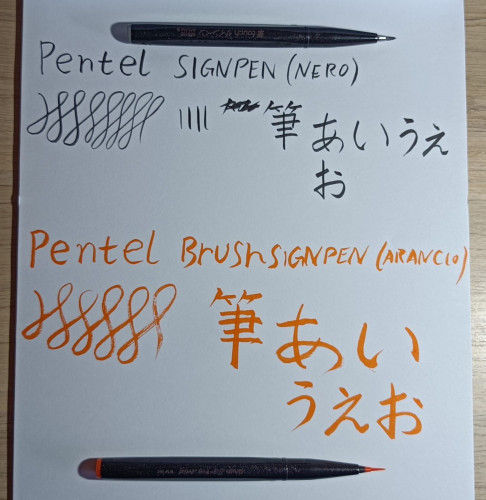 touch サインペン
Pentel SIGNPEN (NERO)
筆 あいうえ
お
Pentel BrUShSIGNPEN (ARANCIO)
筆あい
うえお